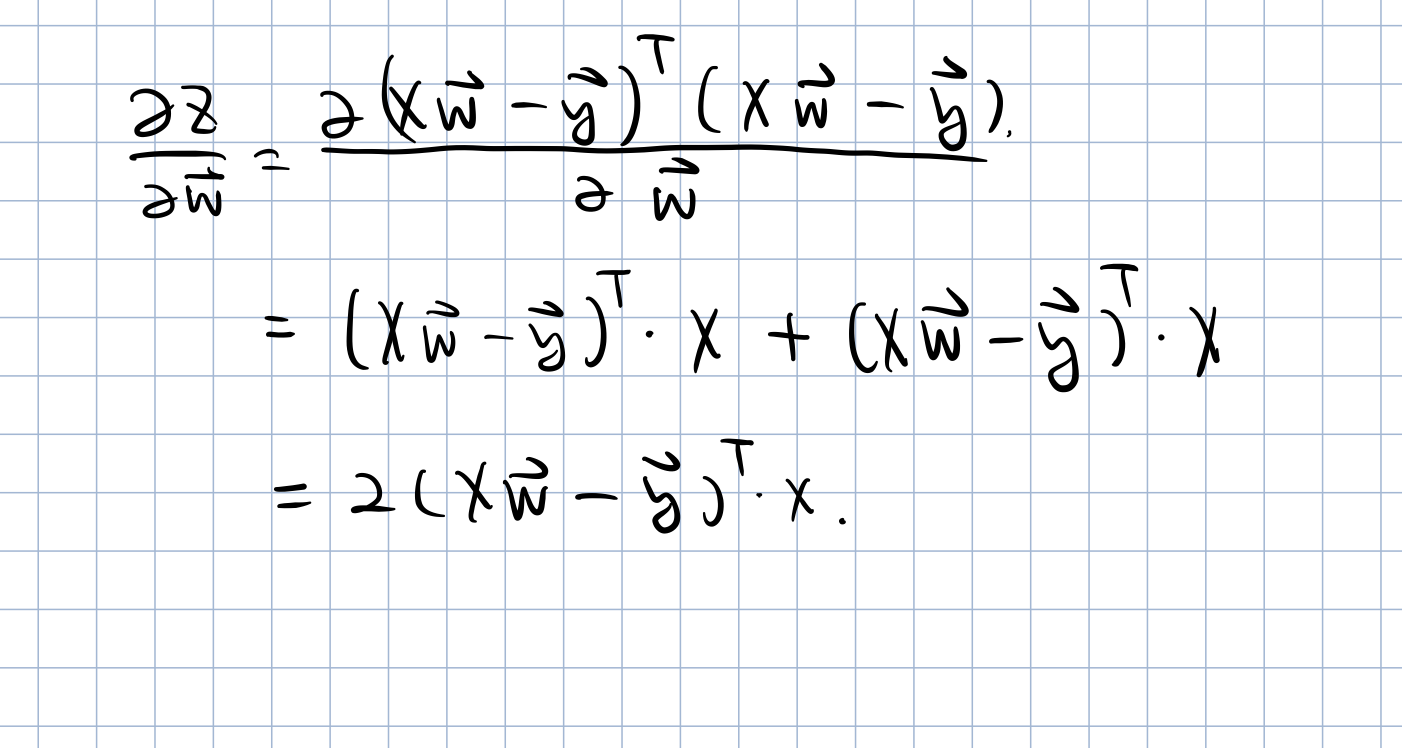 ∂z/∂w⃗ = ∂(Xw⃗ − y⃗)ᵀ(Xw⃗ − y⃗)./∂w⃗
= (Xw⃗ − y⃗)ᵀ · X + (Xw⃗ − y⃗)ᵀ · X
= 2(Xw⃗ − y⃗)ᵀ · X.